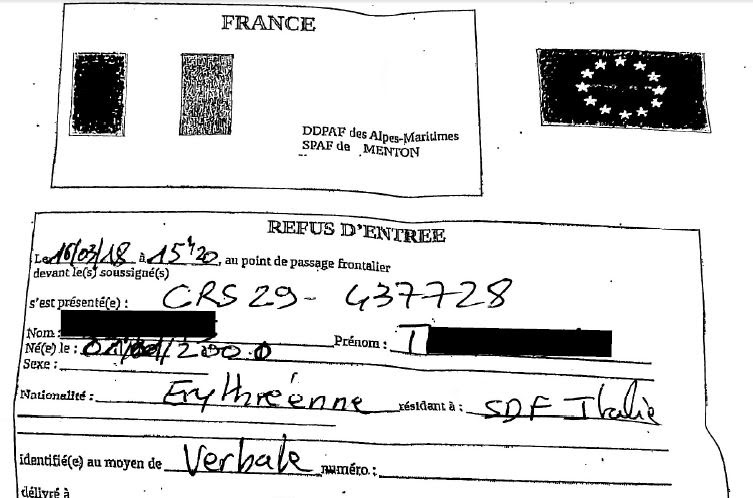 FRANCE
DDPAF des Alpes-Maritimes
SPAF de MENTON
REFUS D'ENTREE
Le 16/03/18 à 15h20, au point de passage frontalier
devant le(s) soussigné(s)
s'est présenté(e) : CRS 29 - 437728
Nom : Prénom : T
Né(e) le : 01/01/2000
Sexe :
Nationalité : Erythréenne résidant à : SDF Italie
identifié(e) au moyen de Verbale numéro :
délivré à